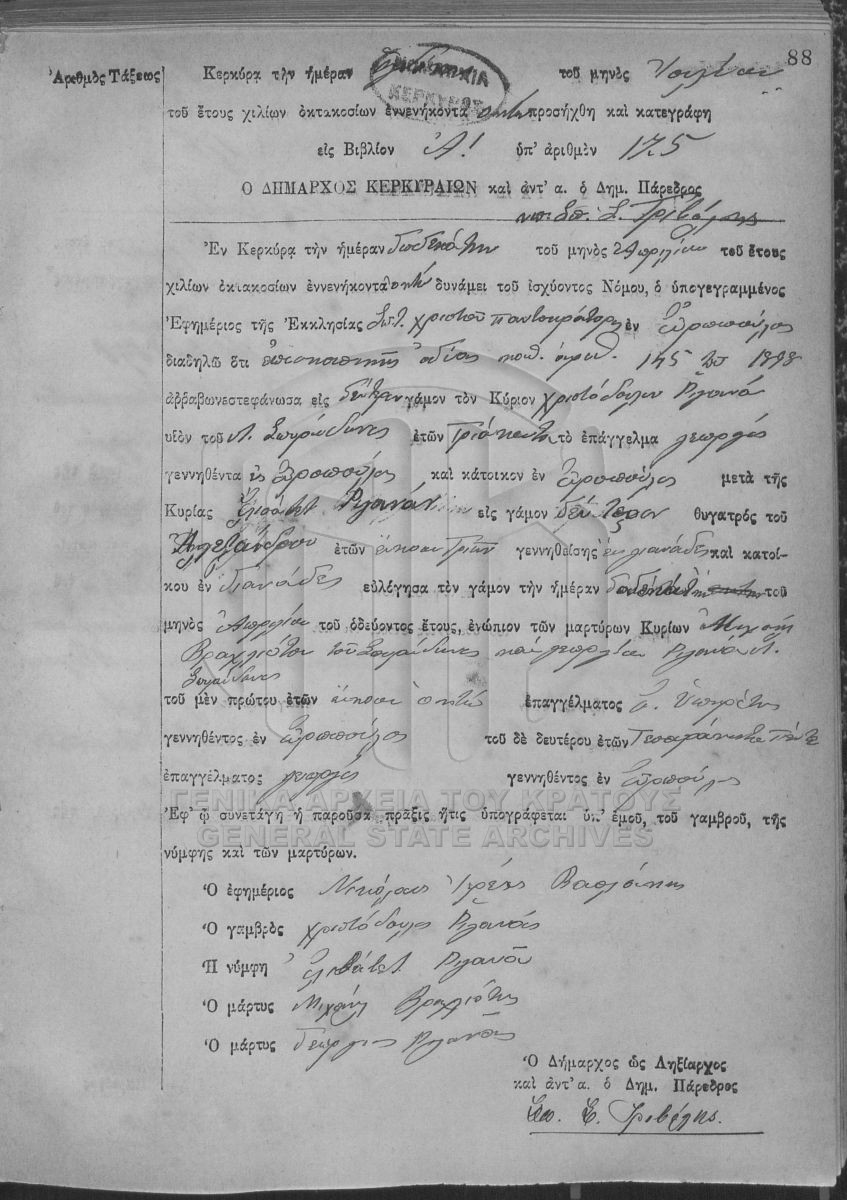 88
Ἀριθμὸς Τάξεως
Κερκύρα τὴν ἡμέραν τοῦ μηνὸς Ἰουλίου
ΔΗΜΑΡΧΙΑ ΚΕΡΚΥΡΑΣ
τοῦ ἔτους χιλίων ὀκτακοσίων ἐννενήκοντα ὀκτὼ προσήχθη καὶ κατεγράφη
εἰς Βιβλίον Α! ὑπ' ἀριθμὸν 175
Ὁ ΔΗΜΑΡΧΟΣ ΚΕΡΚΥΡΑΙΩΝ καὶ ἀντ' α. ὁ Δημ. Πάρεδρος
Σπ. Σ. Τριβόλης
Ἐν Κερκύρα τὴν ἡμέραν δωδεκάτην τοῦ μηνὸς Ἀπριλίου τοῦ ἔτους
χιλίων ὀκτακοσίων ἐννενήκοντα ὀκτὼ δυνάμει τοῦ ἰσχύοντος Νόμου, ὁ ὑπογεγραμμένος
Ἐφημέριος τῆς Ἐκκλησίας Χριστοῦ Παντοκράτορος ἐν Εὐροπούλοις
διαδηλῶ ὅτι ἐπισκοπικῆς ἀδείας ὑπ. ἀριθ. 145 1898
ἀρραβωνεστεφάνωσα εἰς δεύτερον γάμον τὸν Κύριον Χριστόδουλον Ριγανᾶ
υἱὸν τοῦ Σπυρίδωνος ἐτῶν Τριάκοντα τὸ ἐπάγγελμα γεωργὸς
γεννηθέντα εἰς Εὐροπούλοις καὶ κάτοικον ἐν Εὐροπούλοις μετὰ τῆς
Κυρίας Ἐλισάβετ Ριγανᾶ εἰς γάμον δεύτερον θυγατρὸς τοῦ
Ἀλεξάνδρου ἐτῶν εἴκοσι Τριῶν γεννηθείσης ἐν γιανάδες καὶ κατοί-
κου ἐν Γιανάδες εὐλόγησα τὸν γάμον τὴν ἡμέραν δωδεκάτην τοῦ
μηνὸς Ἀπριλίου τοῦ ὁδεύοντος ἔτους, ἐνώπιον τῶν μαρτύρων Κυρίων Μιχαὴλ
Βραχλιώτου τοῦ Σπυρίδωνος καὶ Γεωργίου Ριγανᾶ
Σπυρίδωνος
τοῦ μὲν πρώτου ἐτῶν εἴκοσι ὀκτὼ ἐπαγγέλματος ὑπηρέτης
γεννηθέντος ἐν Εὐροπούλοις τοῦ δὲ δευτέρου ἐτῶν Τεσσαράκοντα πέντε
ἐπαγγέλματος γεωργὸς γεννηθέντος ἐν Εὐροπούλοις
ΓΕΝΙΚΑ ΑΡΧΕΙΑ ΤΟΥ ΚΡΑΤΟΥΣ
Ἐφ' ᾧ συνετάγη ἡ παροῦσα πρᾶξις ἥτις ὑπογράφεται ὑπ' ἐμοῦ, τοῦ γαμβροῦ, τῆς
GENERAL STATE ARCHIVES
νύμφης καὶ τῶν μαρτύρων.
Ὁ ἐφημέριος Νικόλαος Ἱερεὺς
Ὁ γαμβρὸς Χριστόδουλος Ριγανᾶς
Ἡ νύμφη Ἐλισάβετ Ριγανᾶ
Ὁ μάρτυς Μιχαὴλ Βραχλιώτης
Ὁ μάρτυς Γεώργιος Ριγανᾶς
Ὁ Δήμαρχος ὡς Ληξίαρχος
καὶ ἀντ' α. ὁ Δημ. Πάρεδρος
Σπ. Σ. Τριβόλης.